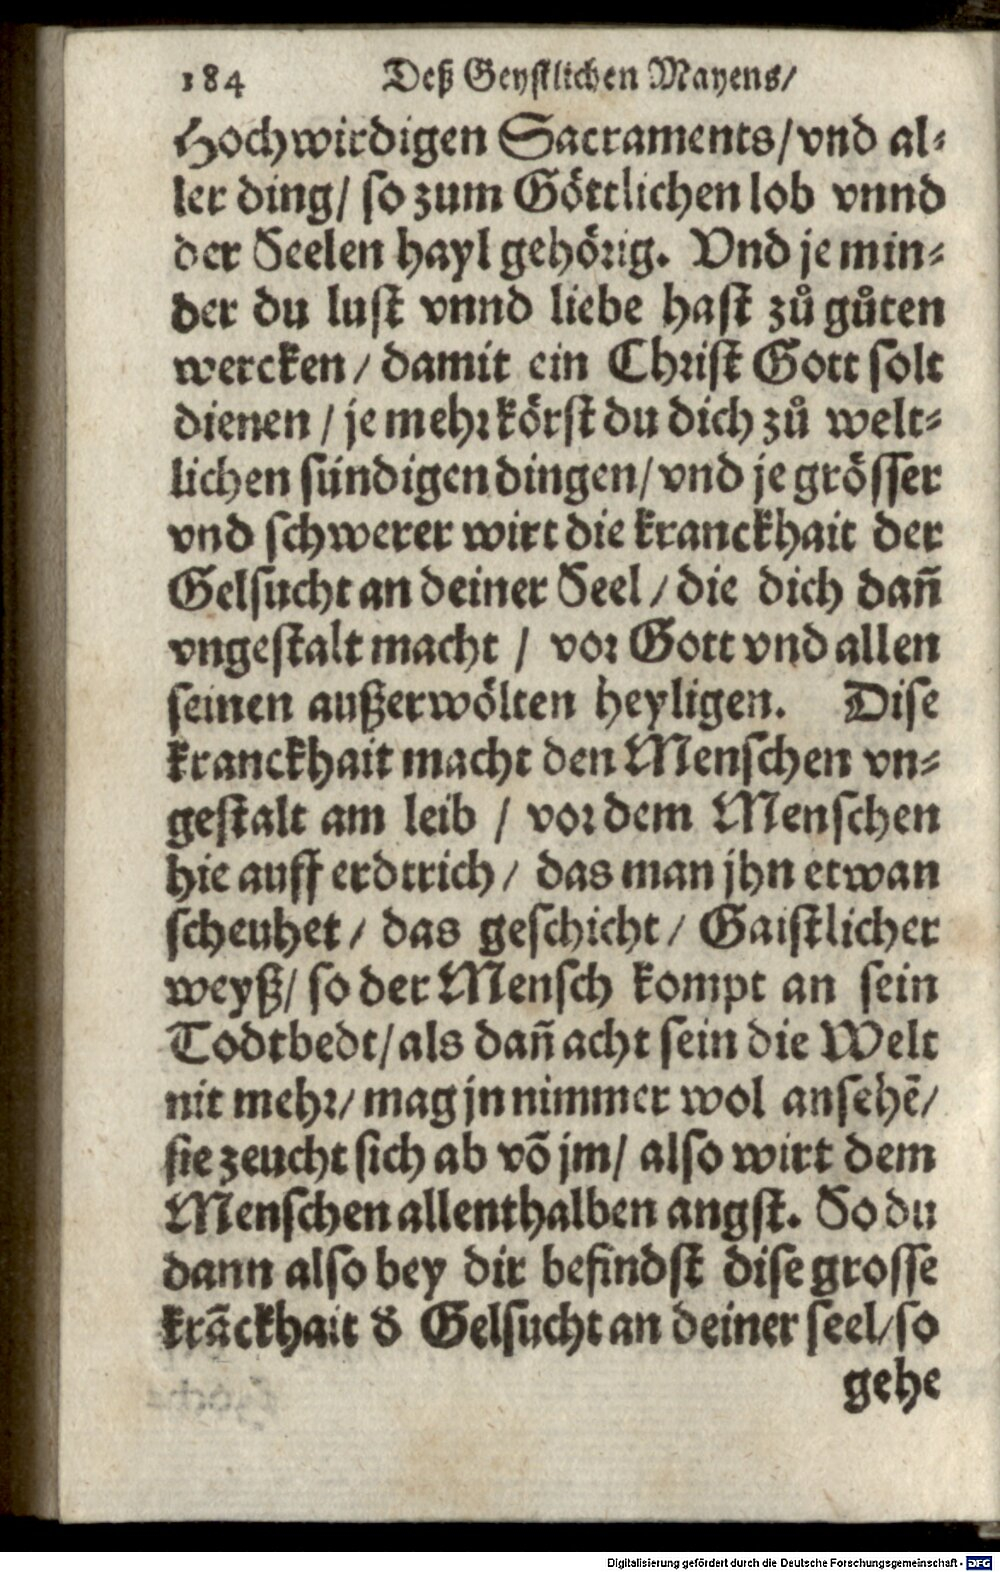 184 Deß Geyſtlichen Mayens/
Hochwirdigen Sacraments/vnd al⸗
ler ding/ ſo zum Göttlichen lob vnnd
der Seelen hayl gehörig. Vnd je min⸗
der du luſt vnnd liebe haſt zů gůten
wercken/ damit ein Chriſt Gott ſolt
dienen / je mehr körſt du dich zů welt⸗
lichen ſündigen dingen/ vnd je gröſſer
vnd ſchwerer wirt die kranckhait der
Gelſucht an deiner Seel / die dich dañ
vngeſtalt macht / vor Gott vnd allen
ſeinen außerwölten heyligen. Diſe
kranckhait macht den Menſchen vn⸗
geſtalt am leib / vor dem Menſchen
hie auff erdtrich/ das man jhn etwan
ſcheuhet/ das geſchicht/ Gaiſtlicher
weyß/ ſo der Menſch kompt an ſein
Todtbedt/ als dañ acht ſein die Welt
nit mehr/ mag jn nimmer wol anſehẽ/
ſie zeucht ſich ab võ jm/ alſo wirt dem
Menſchen allenthalben angſt. So du
dann alſo bey dir befindſt diſe groſſe
krãckhait đ Gelſucht an deiner ſeel/ ſo
gehe
Digitalisierung gefördert durch die Deutsche Forschungsgemeinschaft - DFG